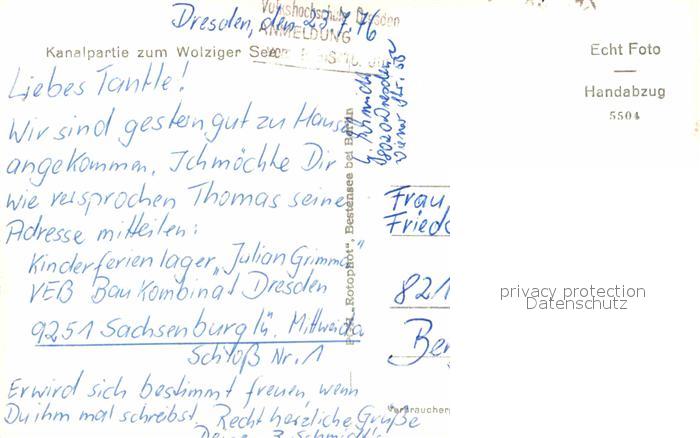 Dresden, den 23.7.76
Volkshochschule Dresden
ANMELDUNG
Kanalpartie zum Wolziger See
Liebes Tantle!
Wir sind gestern gut zu Hause
angekommen. Ich möchte Dir
wie versprochen Thomas seine
Adresse mitteilen:
Kinderferienlager „Julian Grimmau"
VEB Baukombinat Dresden
9251 Sachsenburg ü. Mittweida
Schloß Nr. 1
Er wird sich bestimmt freuen, wenn
Du ihm mal schreibst. Recht herzliche Grüße
"Rotophot", Bestensee bei Berlin
8020 Dresden
Echt Foto
Handabzug
5504
Frau
Fried
821
Ber
Verbraucher
privacy protection
Datenschutz